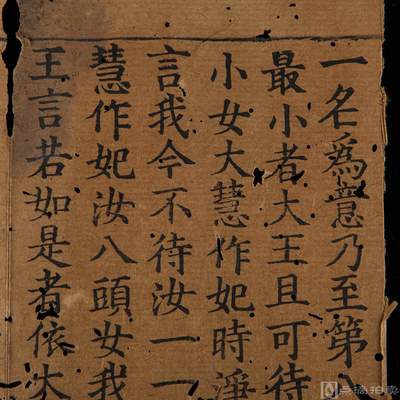 一名爲意乃至第
最小者大王且可待
小女大慧作妃時淨
言我今不待汝一一
慧作妃汝八頭女我
王言若如是者依大